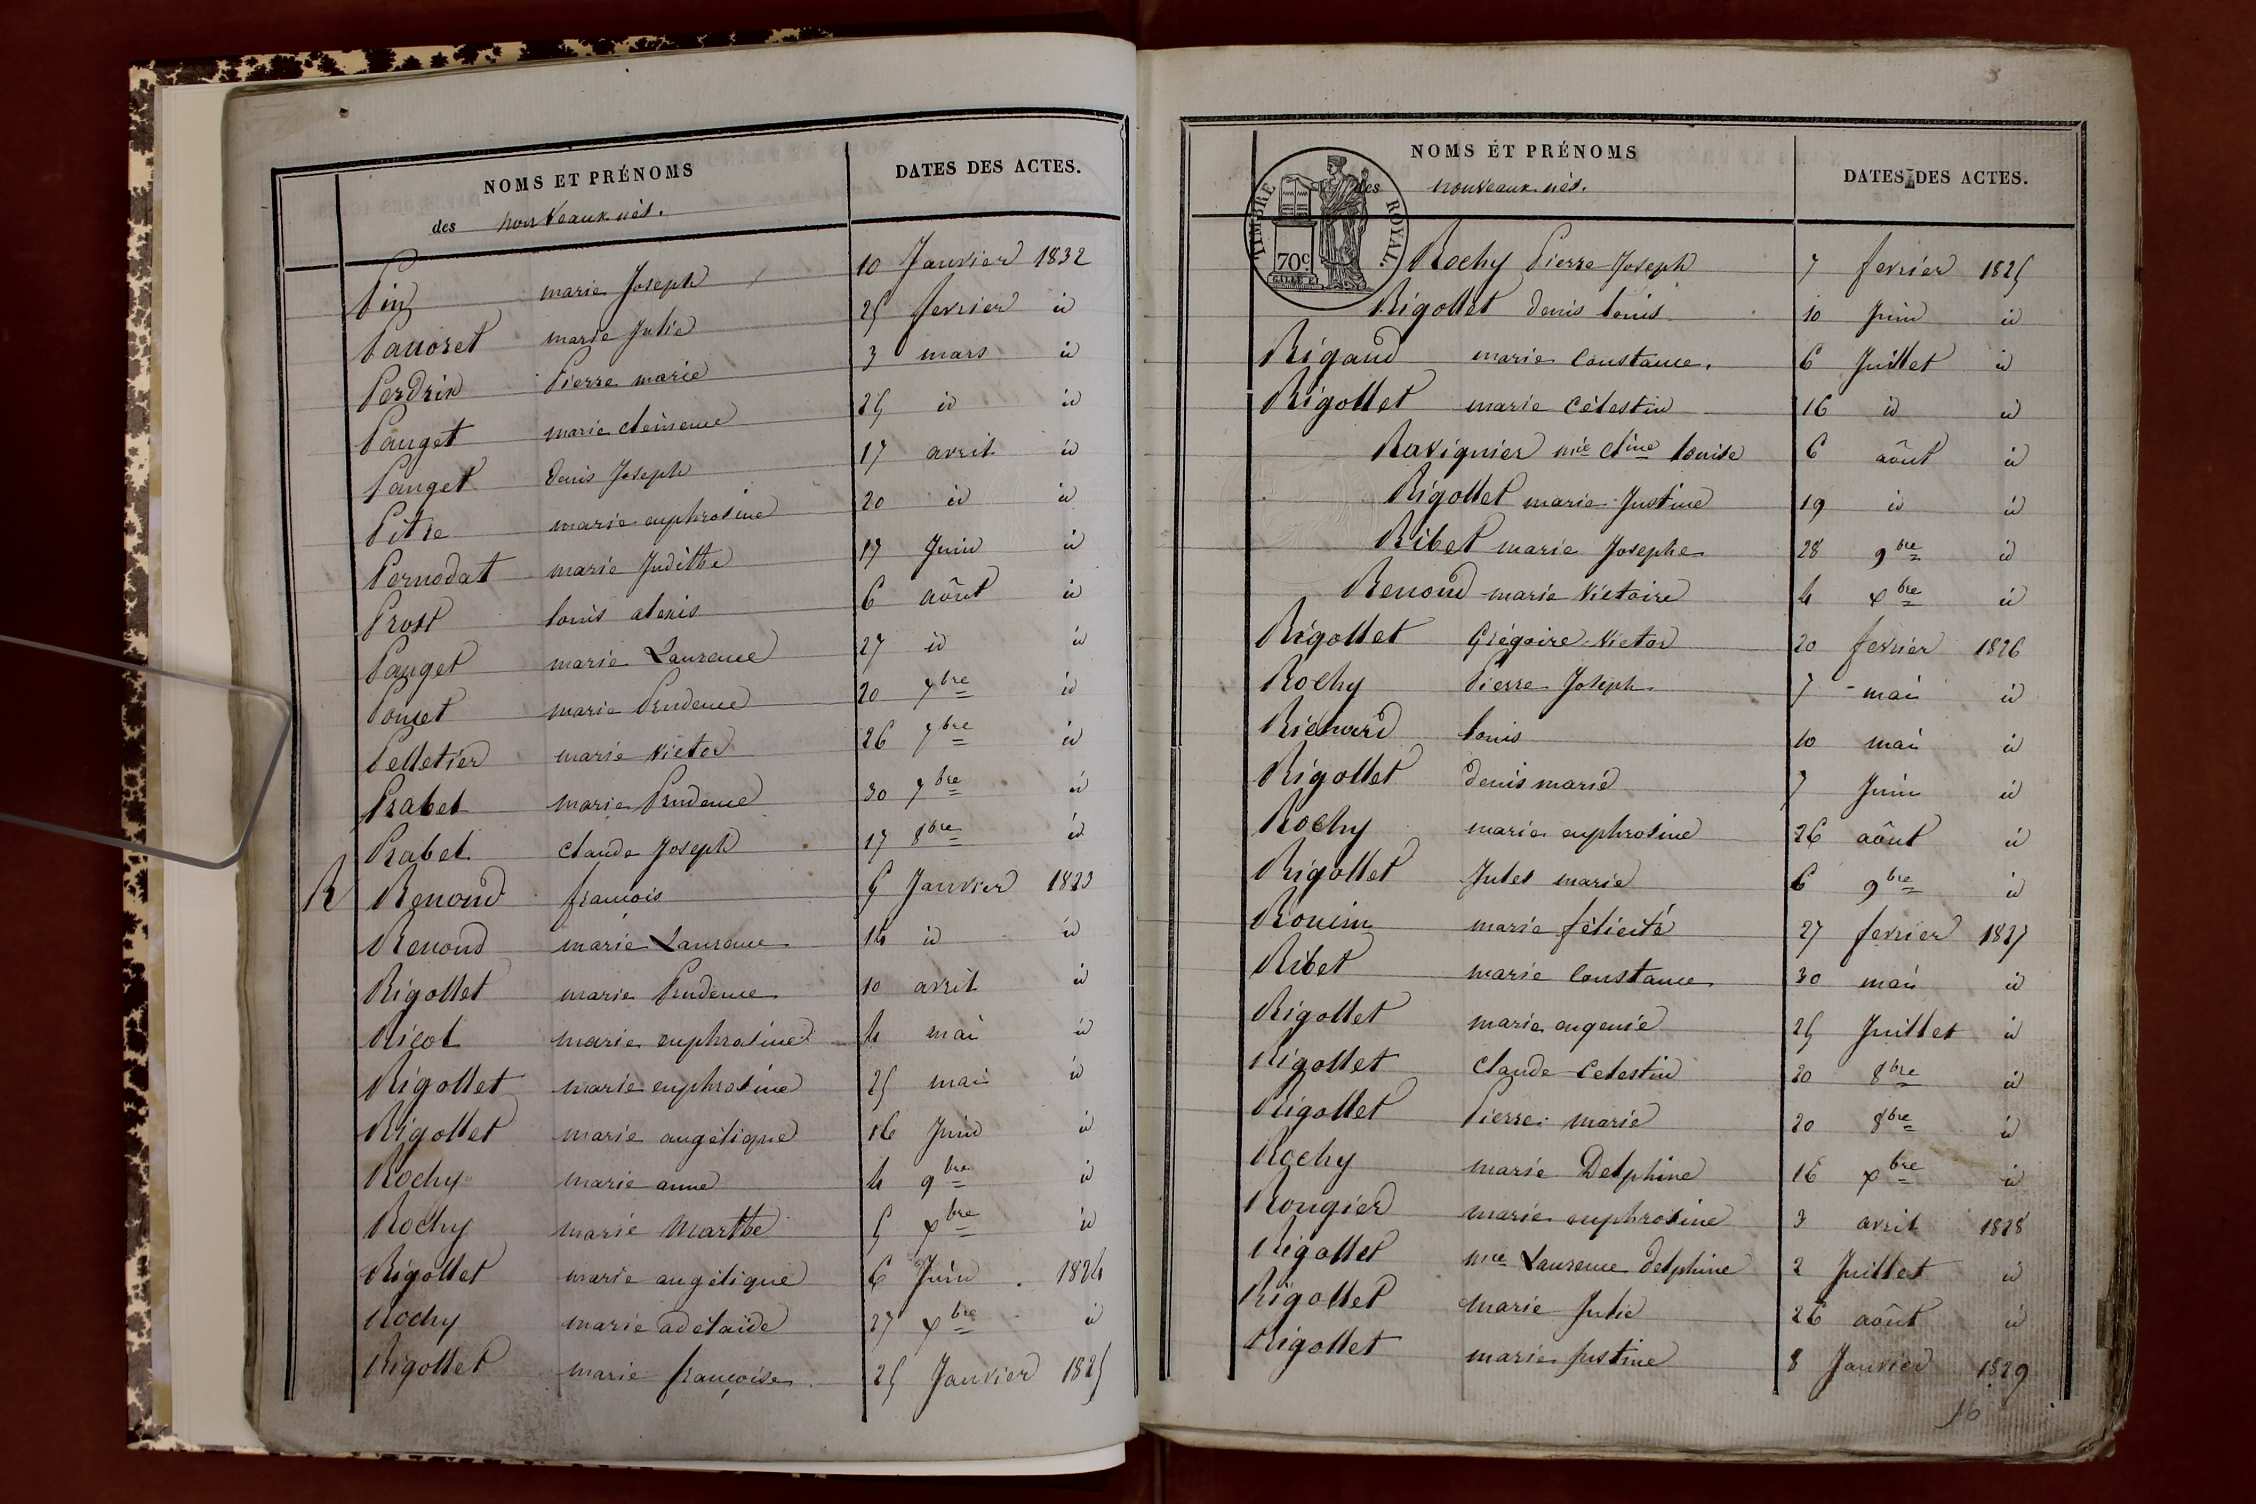 NOMS ET PRÉNOMS
DATES DES ACTES.
des nouveaux nés.
Pin marie Joseph 10 Janvier 1832
marie Julie 25 fevrier id
Perdrix Pierre marie 3 mars id
Panget marie clémence 25 id id
Panget denis Joseph 17 avril id
Pitre marie euphrosine 20 id id
Pernodat marie Judithe 17 Juin id
Prost louis alexis 6 août id
Panget marie Laurence 27 id id
Ponset marie Prudence 20 7bre id
Pelletier marie victor 26 7bre id
Prabel marie Prudence 30 7bre id
Prabel claude Joseph 17 8bre id
R Renoud françois 5 Janvier 1823
Renoud marie Laurence 14 id id
Rigollet marie Prudence 10 avril id
Ricol marie euphrosine 4 mai id
Rigollet marie euphrosine 25 mai id
Rigollet marie angélique 16 Juin id
Rochy marie anne 4 9bre id
Rochy marie Marthe 5 xbre id
Rigollet marie angélique 6 Juin 1824
Rochy marie adélaïde 27 xbre id
Rigollet marie françoise 25 Janvier 1825
NOMS ET PRÉNOMS
DATES DES ACTES.
des nouveaux nés.
TIMBRE ROYAL.
70c
Rochy Pierre Joseph 7 fevrier 1825
Rigollet denis louis 10 Juin id
Rigaud marie Constance. 6 Juillet id
Rigollet marie Célestin 16 id id
Ravignier mie cline louise 6 août id
Rigollet marie Justine 19 id id
Ribet marie Josephe 28 9bre id
Renoud marie Victoire 4 xbre id
Rigollet Grégoire Victor 20 fevrier 1826
Rochy Pierre Joseph 7 mai id
Richard louis 10 mai id
Rigollet denis marie 7 Juin id
Rochy marie euphrosine 26 août id
Rigollet Jules marie 6 9bre id
marie félicité 27 fevrier 1827
Ribet marie Constance 30 mai id
Rigollet marie eugenie 25 Juillet id
Rigollet Claude Celestin 20 8bre id
Rigollet Pierre marie 20 8bre id
Rochy marie Delphine 16 xbre id
Rougier marie euphrosine 3 avril 1828
Rigollet mie Laurence delphine 2 Juillet id
Rigollet Marie Julie 26 août id
Rigollet marie Justine 8 Janvier 1829